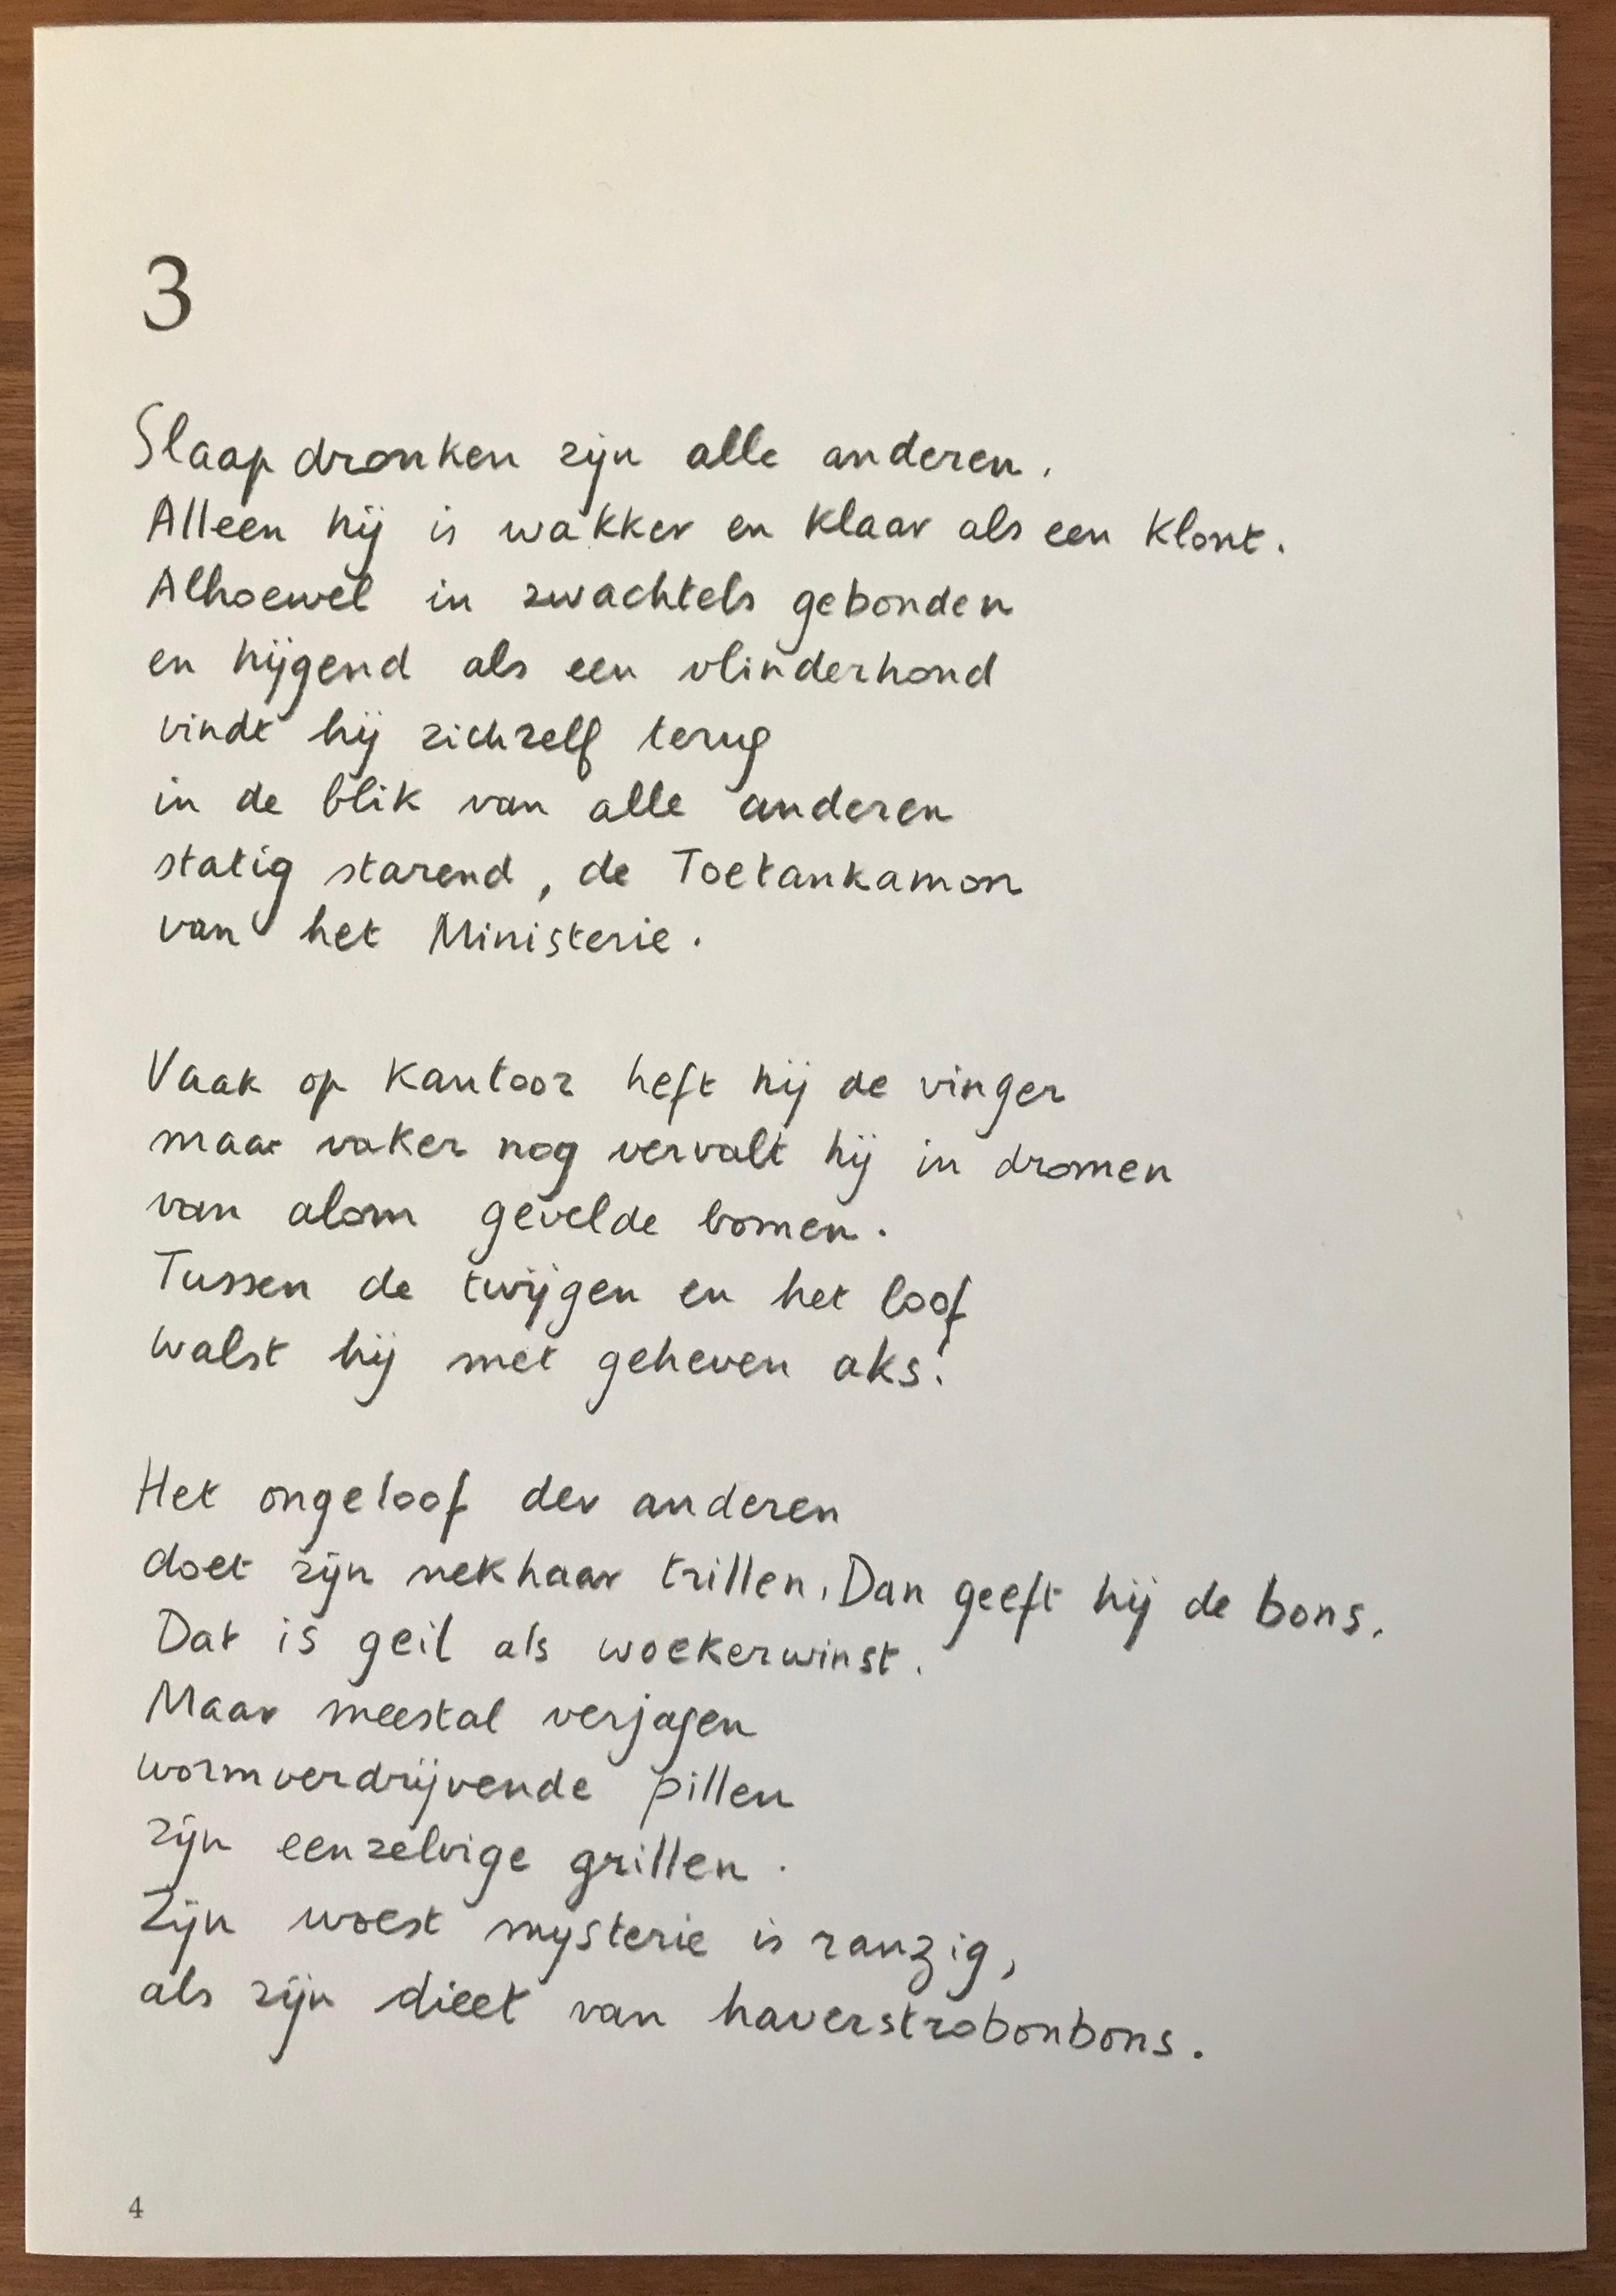 3
Slaapdronken zijn alle anderen.
Alleen hij is wakker en klaar als een klont.
Alhoewel in zwachtels gebonden
en hijgend als een vlinderhond
vindt hij zichzelf terug
in de blik van alle anderen
statig starend, de Toetankamon
van het Ministerie.
Vaak op kantoor heft hij de vinger
maar vaker nog vervalt hij in dromen
van alom gevelde bomen.
Tussen de twijgen en het loof
walst hij met geheven aks.
Het ongeloof der anderen
doet zijn nekhaar trillen. Dan geeft hij de bons.
Dat is geil als woekerwinst.
Maar meestal verjagen
wormverdrijvende pillen
zijn eenzelvige grillen.
Zijn woest mysterie is ranzig,
als zijn dieet van haverstrobonbons.
4